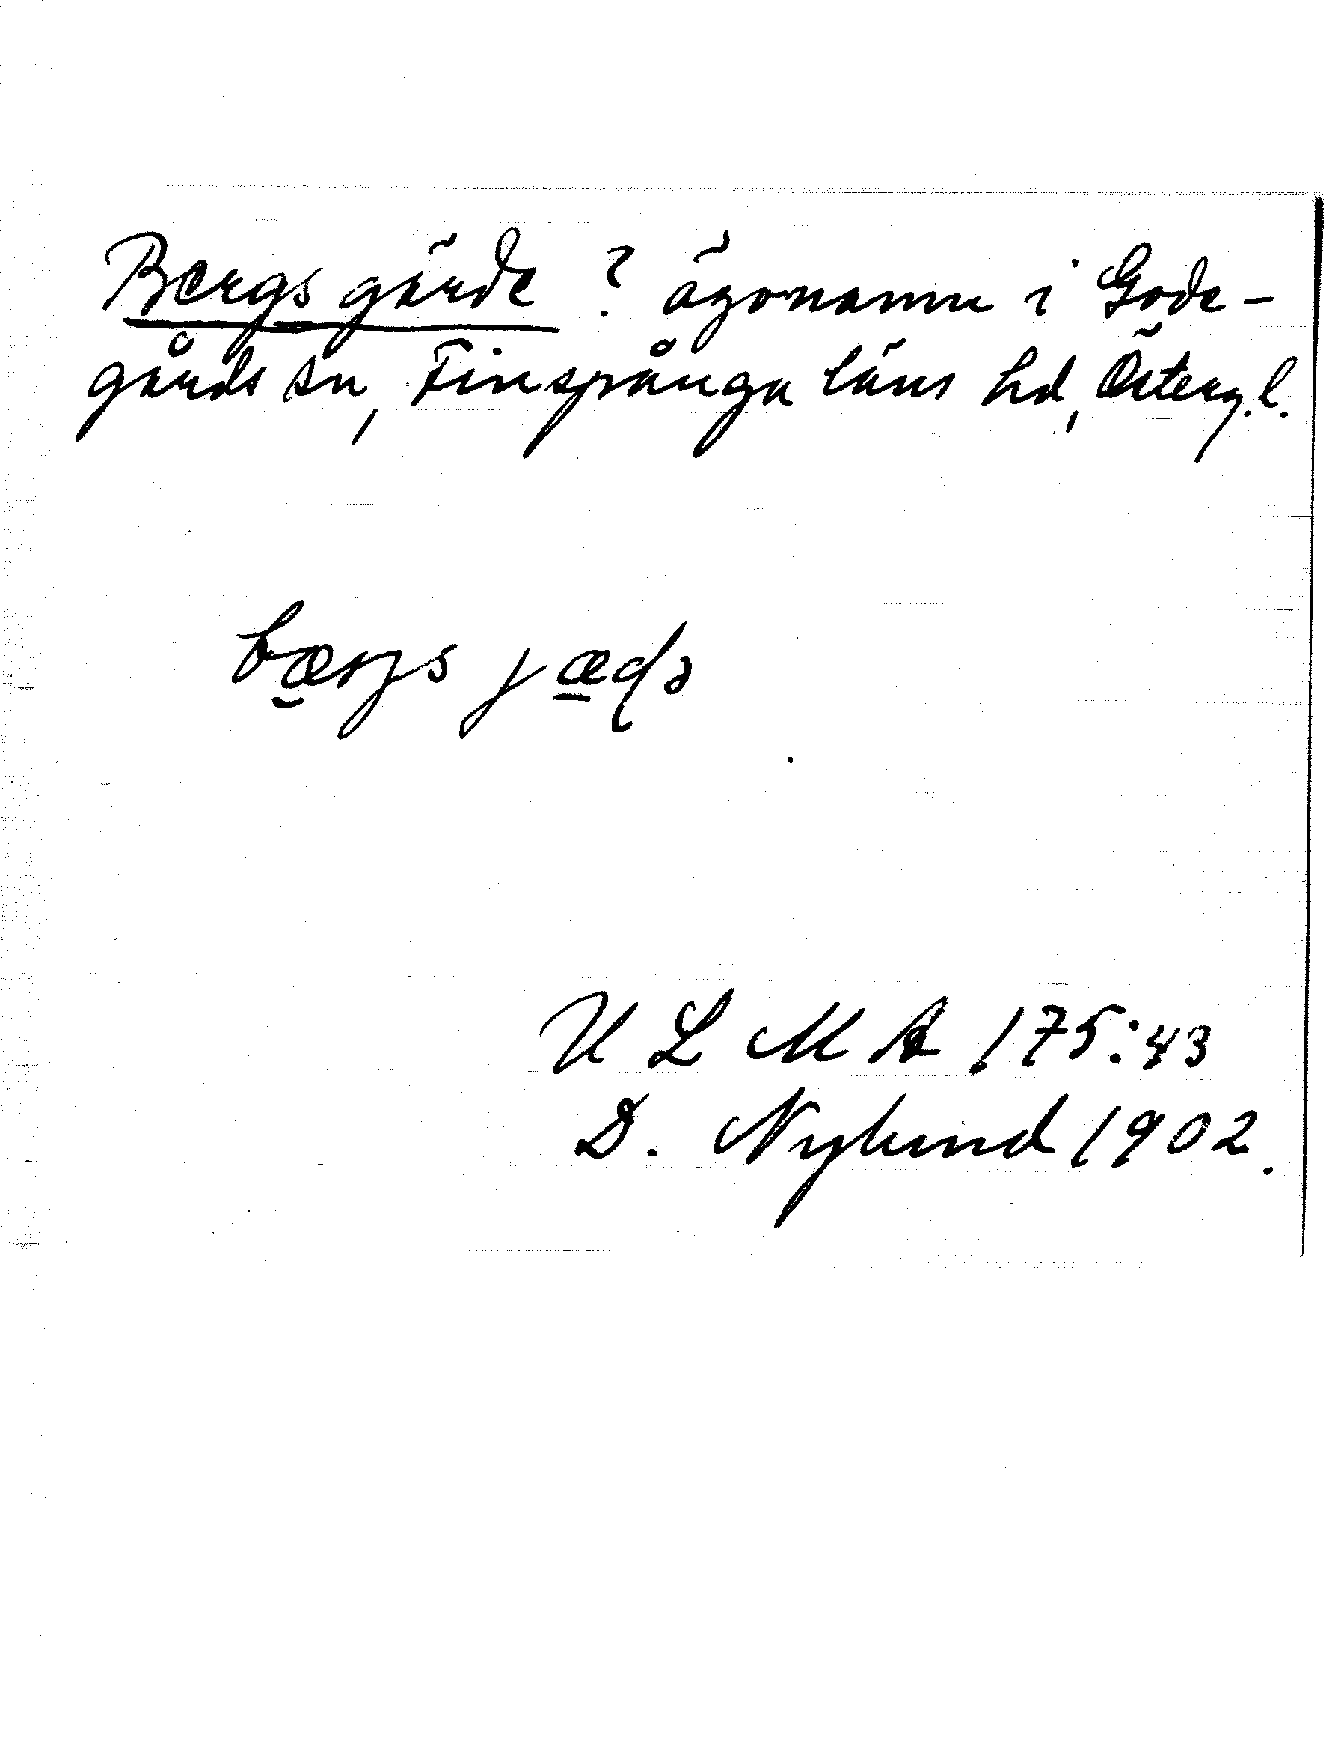 Bergs gärde ? ägonamn i Gode-
gårds sn, Finspånga läns hd, Österg. l.
bærjs jæḍə
U L M A 175:43
D. Nylund 1902.